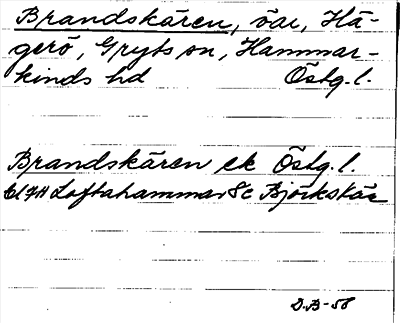 Brandskären, öar, Hä-
gerö, Gryts sn, Hammar-
kinds hd Östg. l.
Brandskären ek Östg. l.
Loftahammar 8c Björkskär
D.B-58